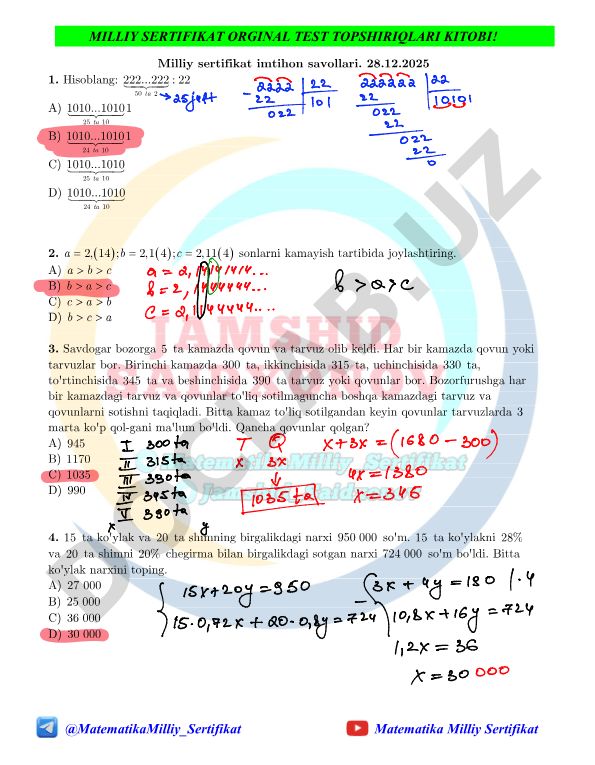 MILLIY SERTIFIKAT ORGINAL TEST TOPSHIRIQLARI KITOBI!
Milliy sertifikat imtihon savollari. 28.12.2025
1. Hisoblang: 222...222 : 22
50 ta 2 → 25 juft
A) 1010...10101
25 ta 10
B) 1010...10101
24 ta 10
C) 1010...1010
25 ta 10
D) 1010...1010
24 ta 10
2222 | 22
- 22 | 101
022
222222 | 22
22 | 10101
022
22
022
22
0
2. a = 2,(14); b = 2,1(4); c = 2,11(4) sonlarni kamayish tartibida joylashtiring.
A) a > b > c
B) b > a > c
C) c > a > b
D) b > c > a
a = 2,14141414...
b = 2,1444444...
c = 2,1144444....
b > a > c
3. Savdogar bozorga 5 ta kamazda qovun va tarvuz olib keldi. Har bir kamazda qovun yoki
tarvuzlar bor. Birinchi kamazda 300 ta, ikkinchisida 315 ta, uchinchisida 330 ta,
to'rtinchisida 345 ta va beshinchisida 390 ta tarvuz yoki qovunlar bor. Bozorfurushga har
bir kamazdagi tarvuz va qovunlar to'liq sotilmaguncha boshqa kamazdagi tarvuz va
qovunlarni sotishni taqiqladi. Bitta kamaz to'liq sotilgandan keyin qovunlar tarvuzlarda 3
marta ko'p qol-gani ma'lum bo'ldi. Qancha qovunlar qolgan?
A) 945
B) 1170
C) 1035
D) 990
I 300 ta
II 315 ta
III 330 ta
IV 345 ta
V 390 ta
T Q
x 3x
1035 ta
x + 3x = (1680 - 300)
4x = 1380
x = 345
x y
4. 15 ta ko'ylak va 20 ta shimning birgalikdagi narxi 950 000 so'm. 15 ta ko'ylakni 28%
va 20 ta shimni 20% chegirma bilan birgalikdagi sotgan narxi 724 000 so'm bo'ldi. Bitta
ko'ylak narxini toping.
A) 27 000
B) 25 000
C) 36 000
D) 30 000
15x + 20y = 950
15·0,72x + 20·0,8y = 724
3x + 4y = 190 |·4
10,8x + 16y = 724
1,2x = 36
x = 30 000
JAMSHID
Matematika Milliy Sertifikat
DOCLAB.UZ
@MatematikaMilliy_Sertifikat
Matematika Milliy Sertifikat